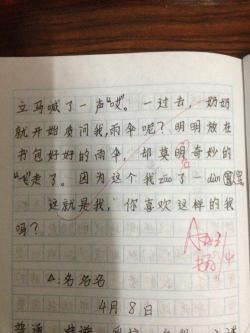 立马喊了一声"哎"。一过去，奶奶
就开始质问我，雨伞呢？明明放在
书包好好的雨伞，却莫明奇妙的
名
"飞"走了。因为这个我zāo了一dùn
这就是我，你喜欢这样的我
吗？
△：名名名
4月8日